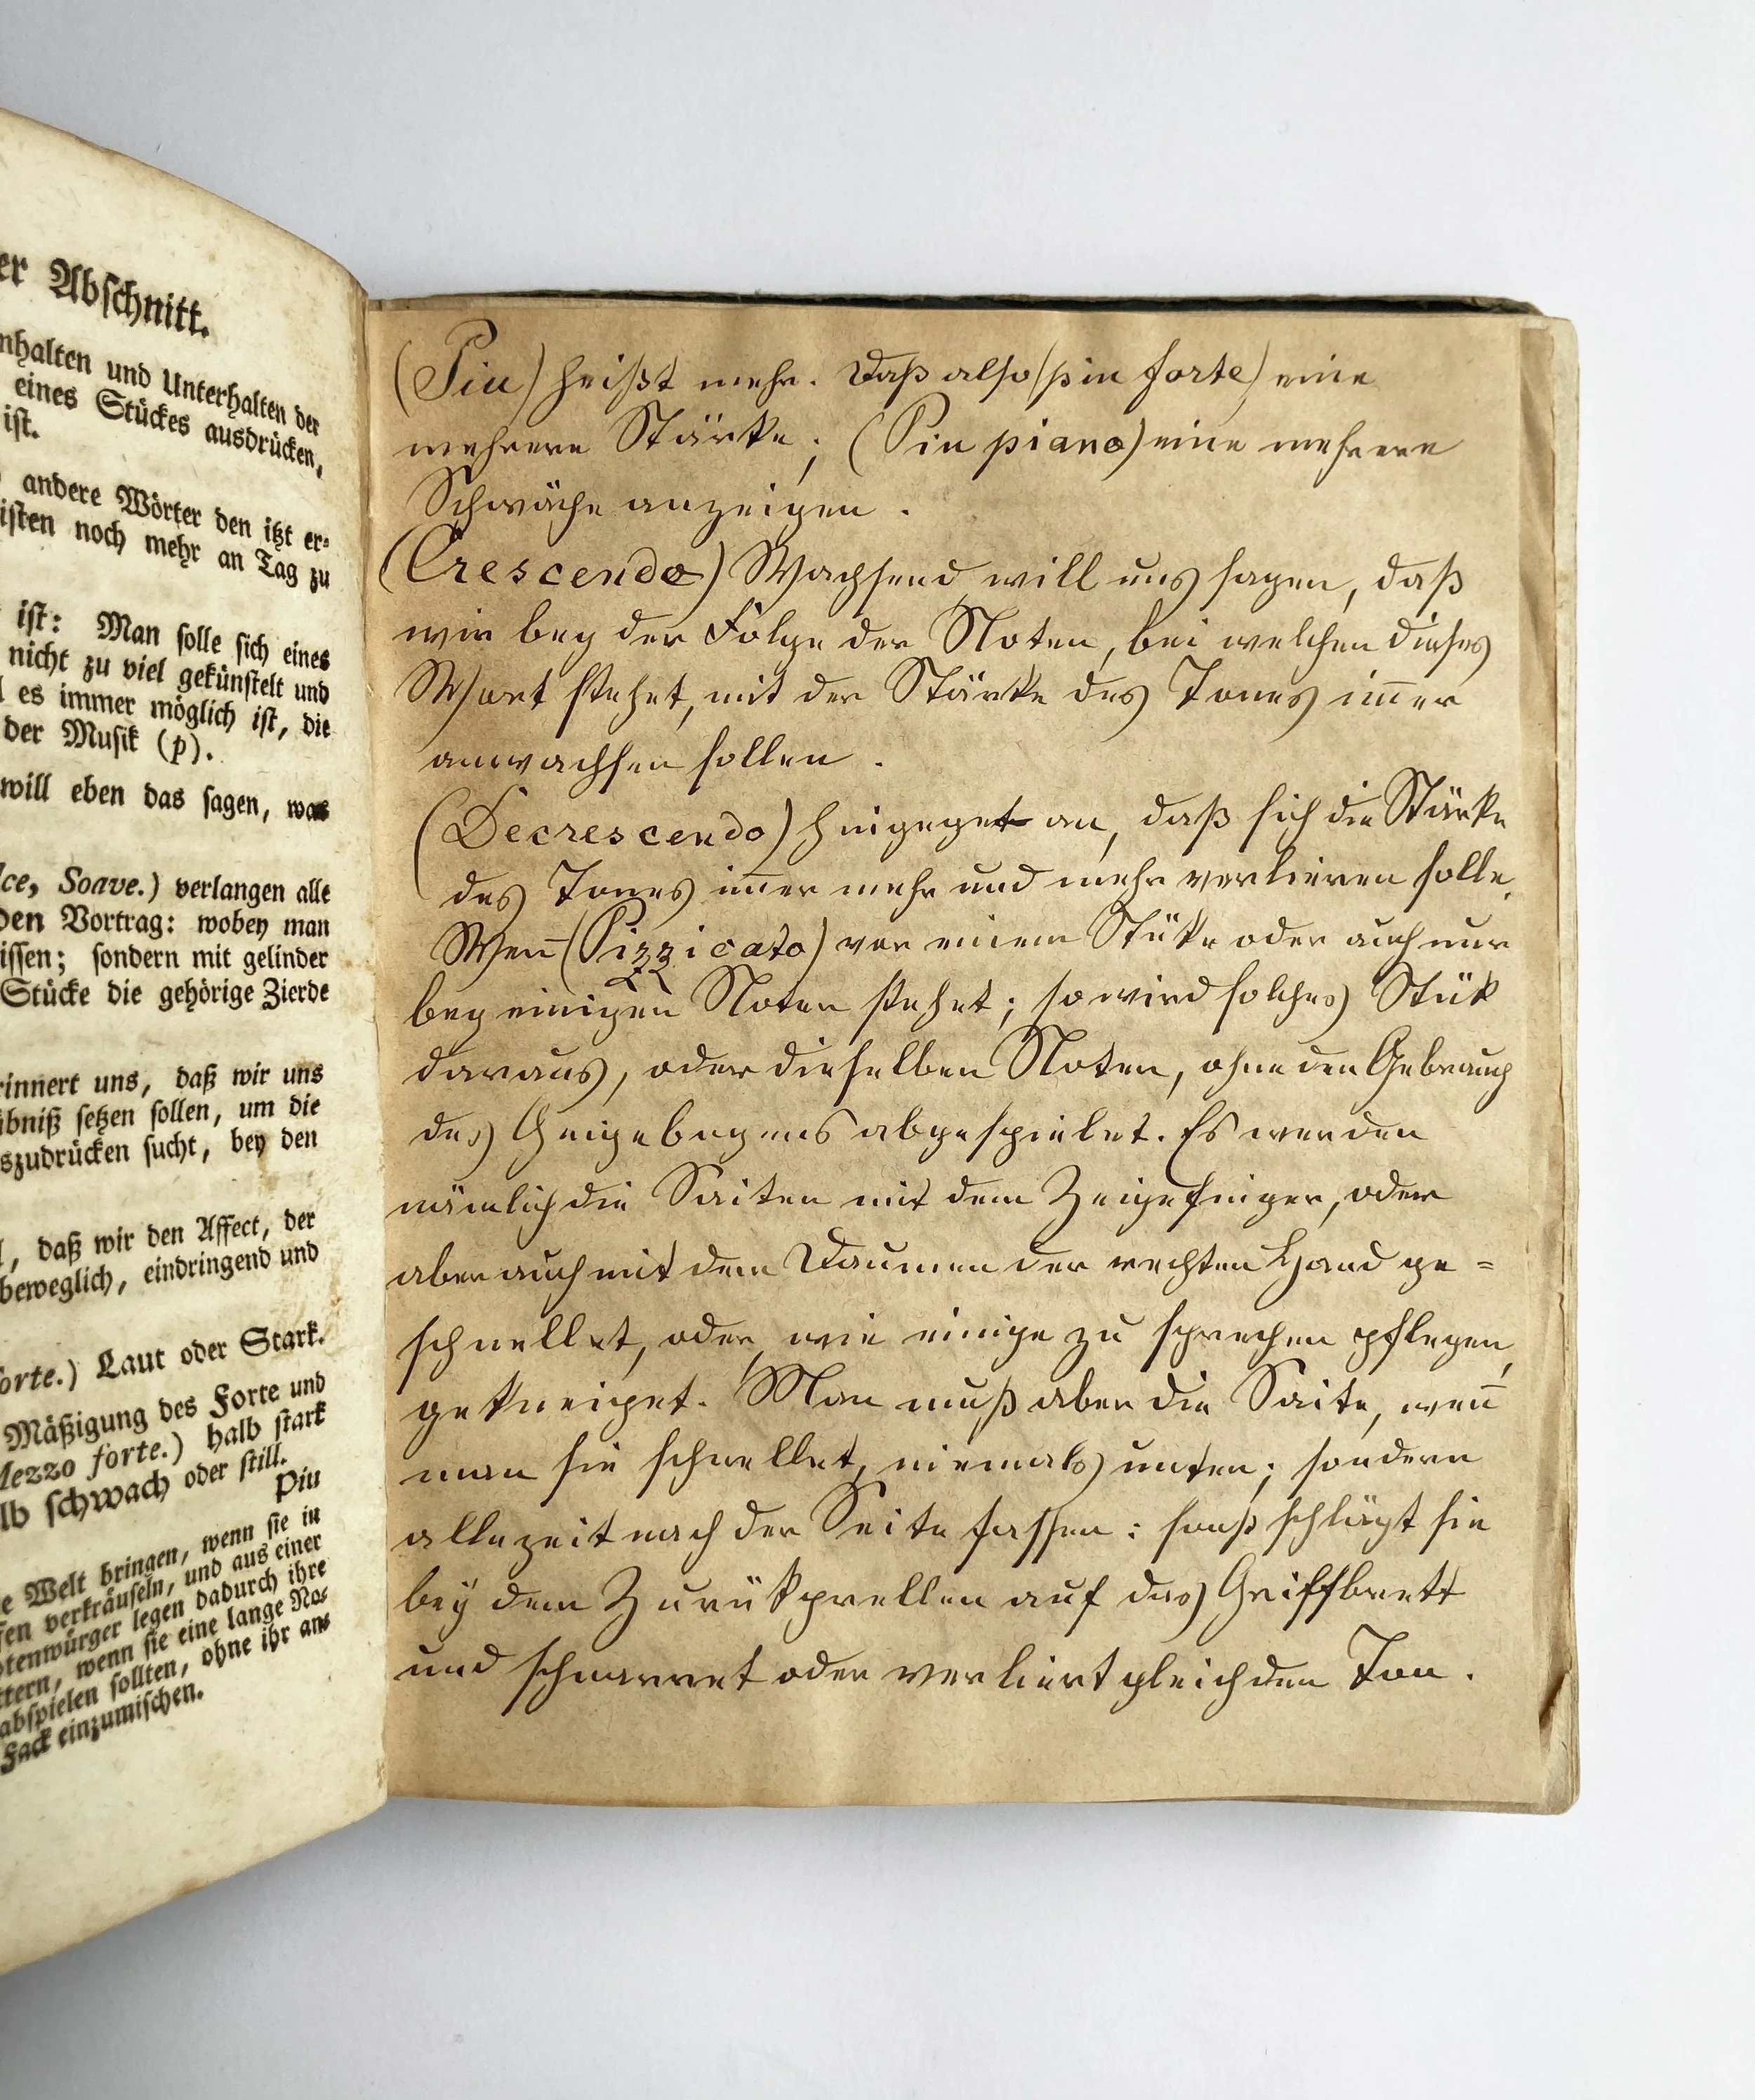 er Abschnitt.
nhalten und Unterhalten der
eines Stückes ausdrücken,
ist.
andere Wörter den itzt er-
isten noch mehr an Tag zu
ist: Man solle sich eines
nicht zu viel gekünstelt und
es immer möglich ist, die
der Musik (p).
will eben das sagen, was
lce, Soave.) verlangen alle
den Vortrag: wobey man
issen; sondern mit gelinder
Stücke die gehörige Zierde
rinnert uns, daß wir uns
ibniß setzen sollen, um die
szudrücken sucht, bey den
, daß wir den Affect, der
beweglich, eindringend und
orte.) Laut oder Stark.
Mäßigung des Forte und
Mezzo forte.) halb stark
lb schwach oder still.
Piu
e Welt bringen, wenn sie in
fen verkräuseln, und aus einer
otenwürger legen dadurch ihre
ttern, wenn sie eine lange No-
abspielen sollten, ohne ihr ans
Fack einzumischen.
(Piu) heißt mehr. Daß also (piu forte) eine
mehrere Stärke; (Piu piano) eine mehrere
Schwäche anzeigen.
(Crescendo) Wachsend, will uns sagen, daß
wir bey der Folge der Noten, bei welchen dieses
Wort stehet, mit der Stärke des Tones im̄er
anwachsen sollen.
(Decrescendo) hingeget an, daß sich die Stärke
des Tones im̄er mehr und mehr verlieren solle.
Wen̄ (Pizzicato) vor einem Stüke oder auch nur
bey einigen Noten stehet; so wird solches Stük
daraus, oder dieselben Noten, ohne den Gebrauch
des Geigebogens abgespielet. Es werden
nämlich die Saiten mit dem Zeigefinger, oder
aber auch mit dem Daumen der rechten Hand ge=
schnellet, oder, wie einige zu sprechen pflegen,
gekneipet. Man muß aber die Saite, wen̄
man sie schnellet, niemals unten; sondern
allezeit nach der Seite fassen: sonst schlägt sie
bëy dem Zurükprellen auf das Griffbrett
und schnarret oder verliert gleich den Ton.